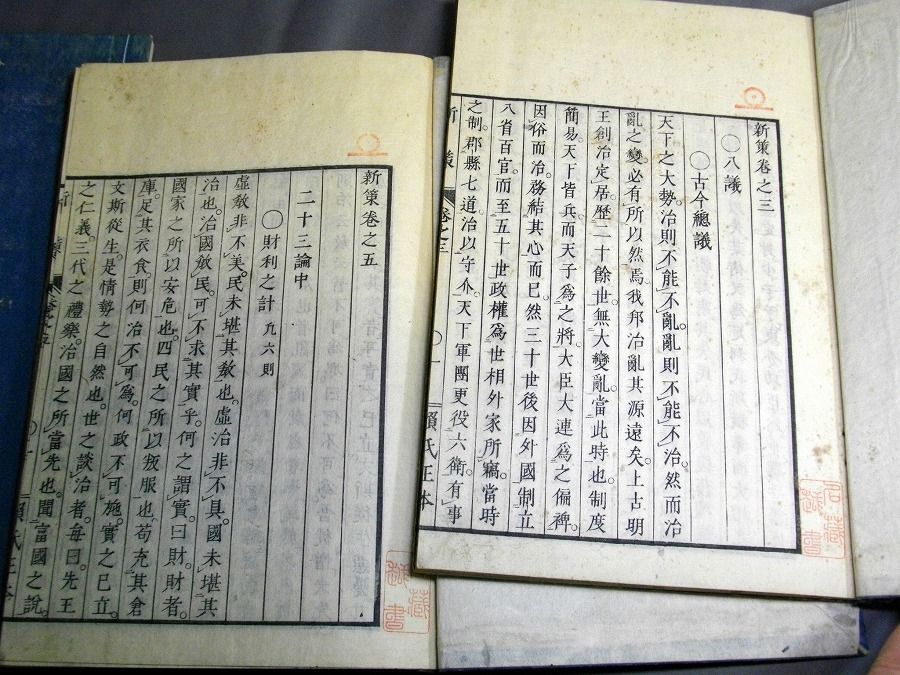 新策卷之三
〇八議
〇古今總議
天下之大勢。治則不能不亂。亂則不能不治。然而治
亂之變。必有所以然焉。我邦治亂其源遠矣。上古明
王創治定居。歷二十餘世。無大變亂。當此時也。制度
簡易。天下皆兵。而天子爲之將。大臣大連爲之偏裨。
因俗而治。務結其心而已。然三十世後。因外國制。立
八省百官。而至五十世。政權爲世相外家所竊。當時
之制。郡縣七道。治以守介。天下軍團。更役六衛。有事
新策 卷之三 〇一 賴氏正本
新策卷之五
二十三論中
〇財利之計 凡六則
虛敎非不美。民未堪其敎也。虛治非不具。國未堪其
治也。治國敎民。可不求其實乎。何之謂實。曰財。財者。
國家之所以安危也。四民之所以叛服也。苟充其倉
庫。足其衣食。則何治不可爲。何政不可施。實之已立。
文斯從生。是情勢之自然也。世之談治者。每曰。先王
之仁義。三代之禮樂。治國之所當先也。聞富國之說。